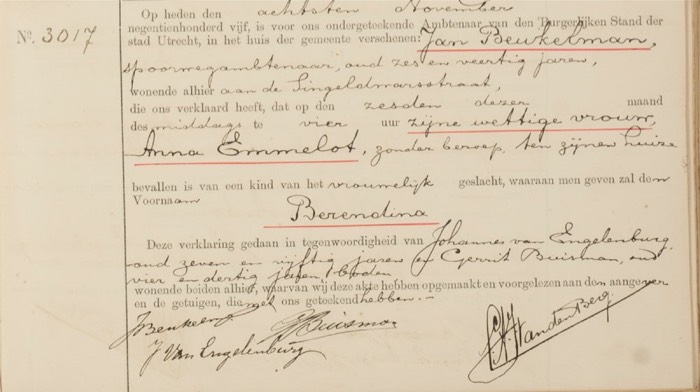 Op heden den achtsten November
negentienhonderd vijf, is voor ons ondergeteekende Ambtenaar van den Burgerlijken Stand der
No. 3017 stad Utrecht, in het huis der gemeente verschenen: Jan Beukelman,
spoorwegambtenaar, oud zes en veertig jaren,
wonende alhier aan de Singeldwarsstraat,
die ons verklaard heeft, dat op den zesden dezer maand
des middags te vier uur zijne wettige vrouw,
Anna Emmelot, zonder beroep, ten zijnen huize
bevallen is van een kind van het vrouwelijk geslacht, waaraan men geven zal den
Voornaam
Berendina
Deze verklaring gedaan in tegenwoordigheid van Johannes van Engelenburg
oud zeven en vijftig jaren en Gerrit Buisman, oud
vier en dertig jaren, boden,
wonende beiden alhier, waarvan wij deze akte hebben opgemaakt en voorgelezen aan den aangever
en de getuigen, die met ons geteekend hebben.-
GBuisman
J Van Engelenburg
van den Berg.